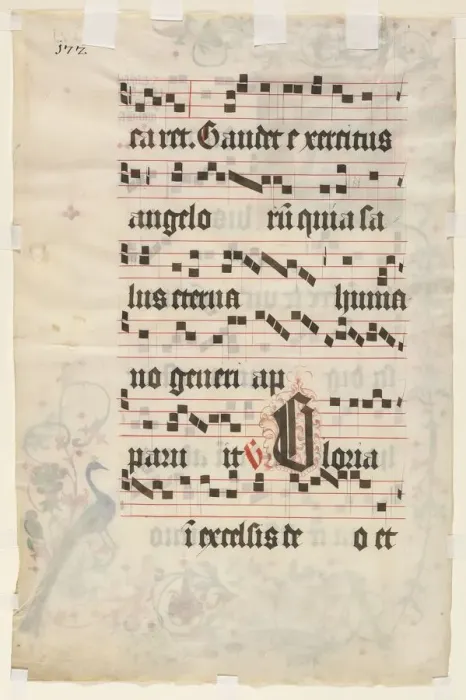 177.
ca ret. Gaudet e xercitus
angelo rū quia sa
lus eterna huma
no generi ap
paru it ℣ Gloria
ī excelsis de o et